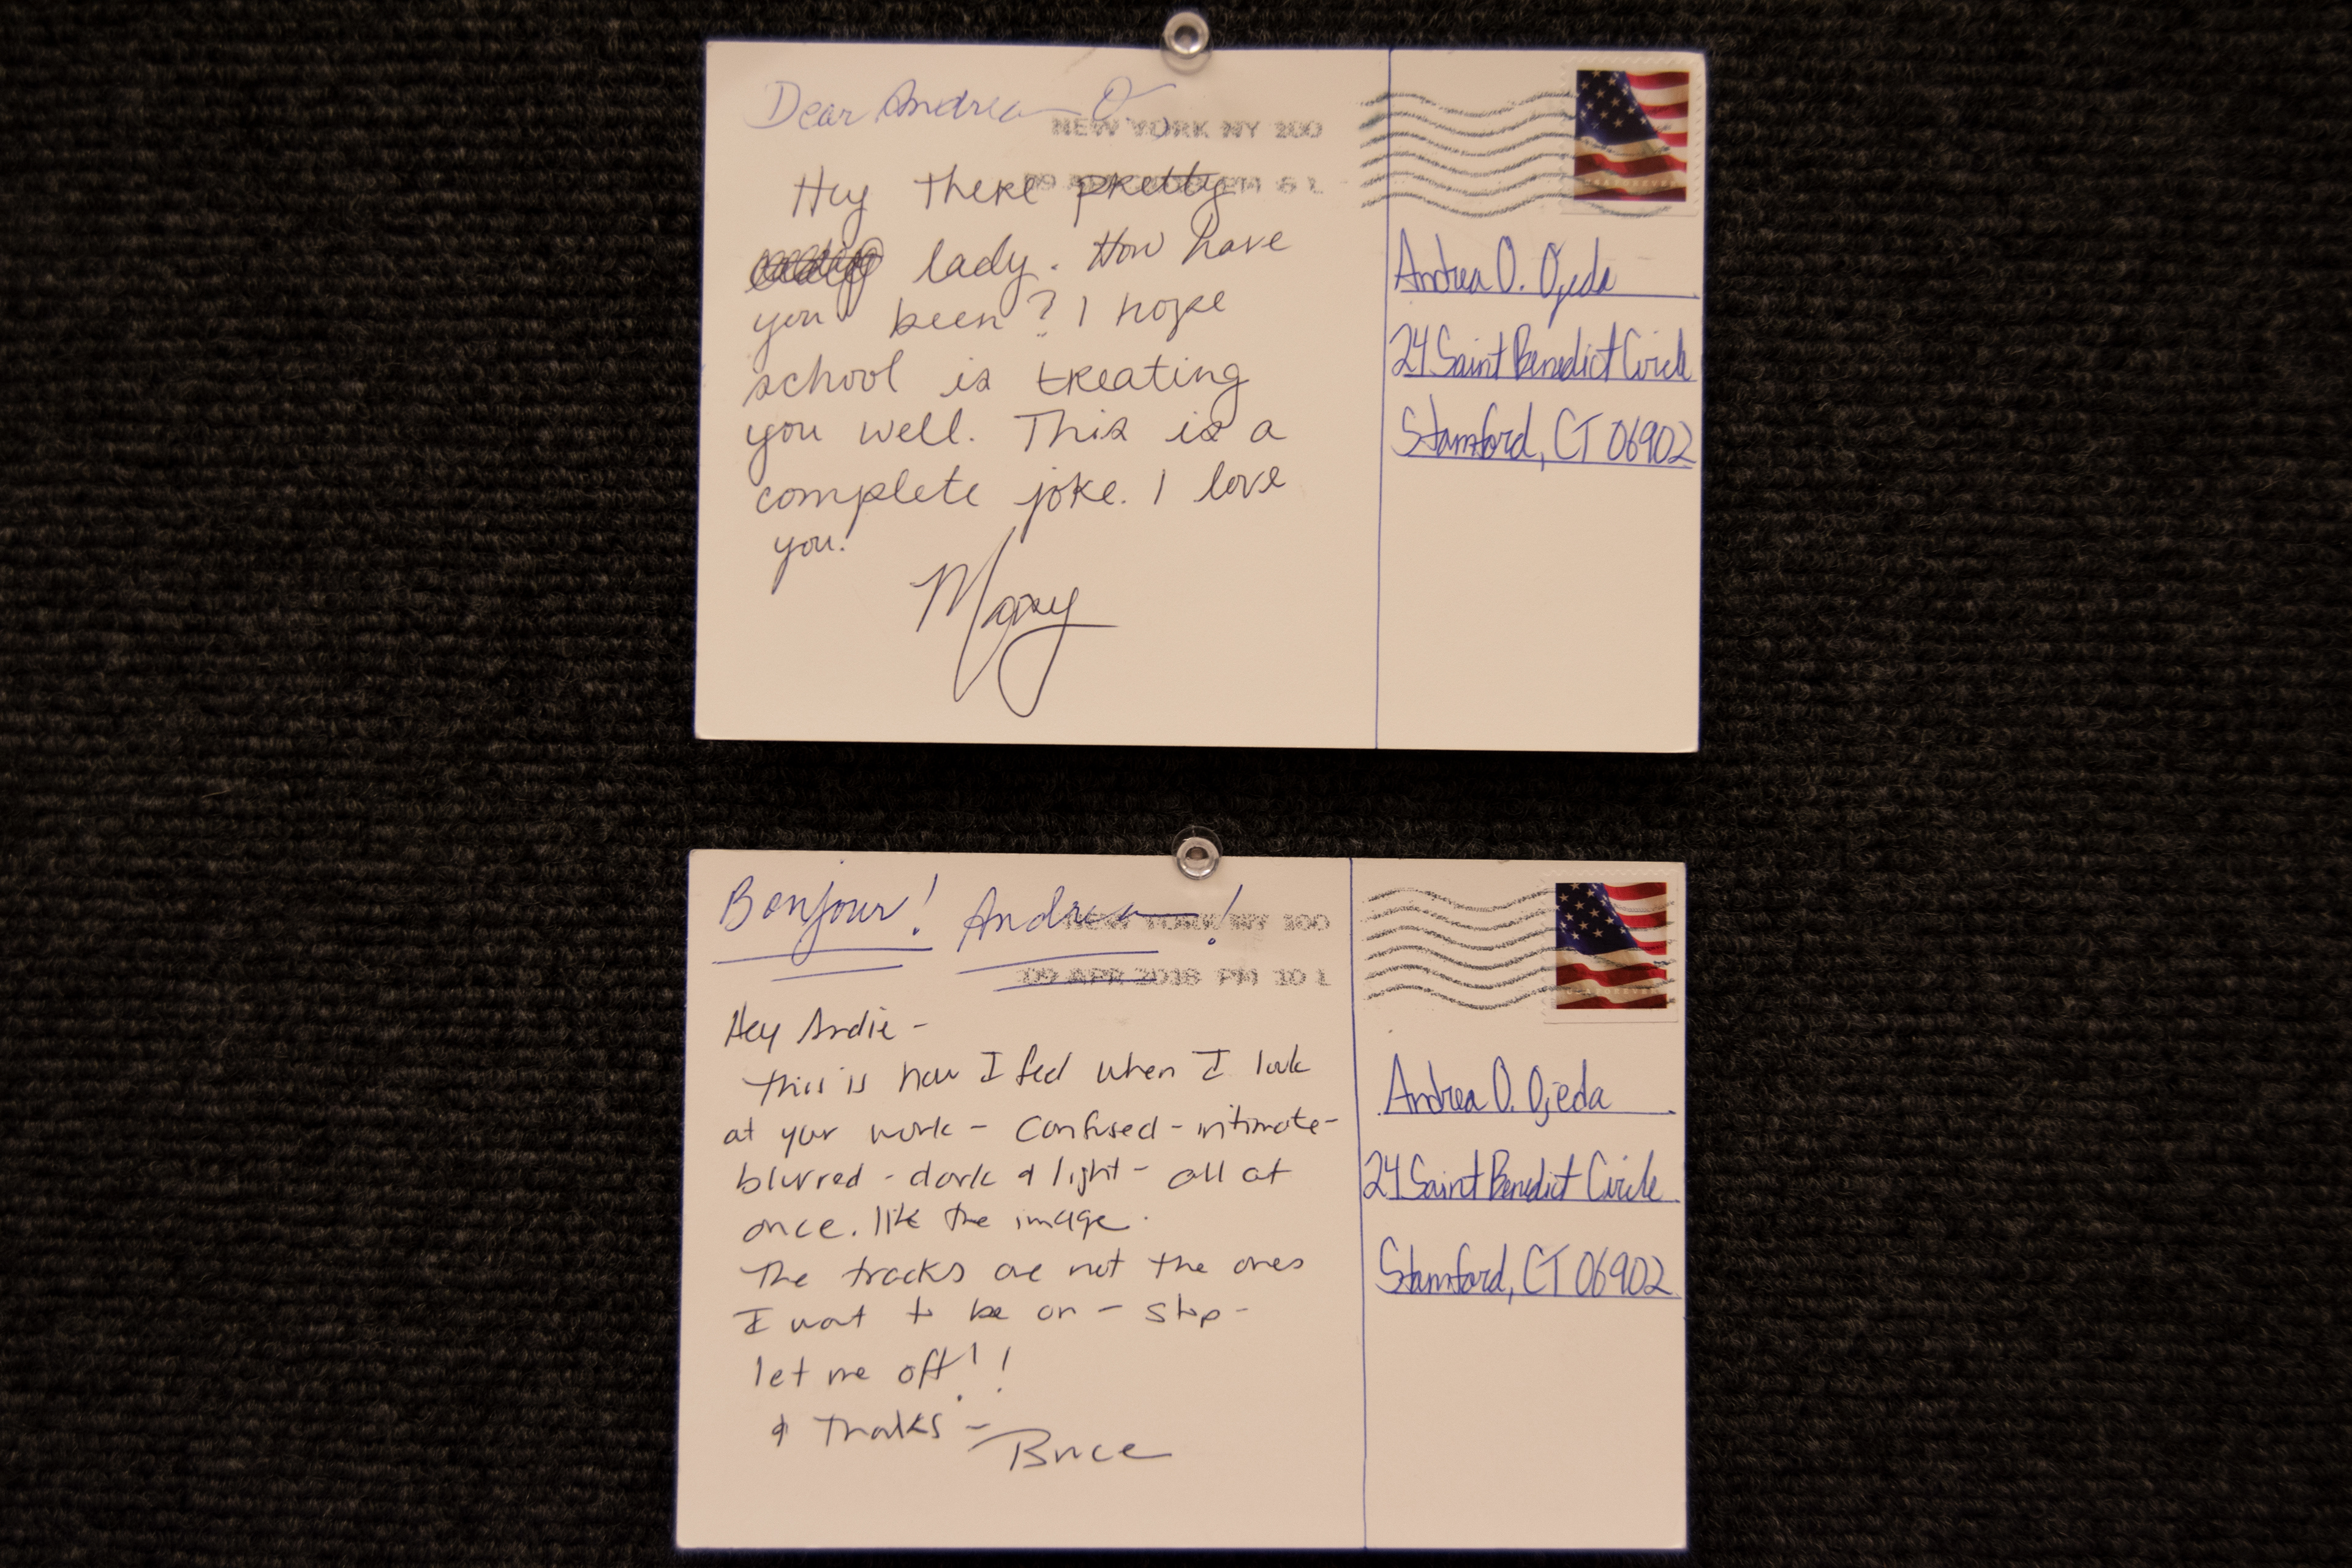 Dear Andrea O
NEW YORK NY 100
Hey there pretty
lady. How have
you been? I hope
school is treating
you well. This is a
complete joke. I love
you.
Andrea O. Ojeda
24 Saint Benedict Circle
Stamford, CT 06902
Bonjour! Andrea!
NEW YORK NY 100
09 APR 2018 PM 10 L
Hey Andie -
This is how I feel when I look
at your work - confused - intimate -
blurred - dark & light - all at
once. like the image.
The tracks are not the ones
I want to be on - stop -
let me off!!
& Thanks -
Andrea O. Ojeda
24 Saint Benedict Circle
Stamford, CT 06902